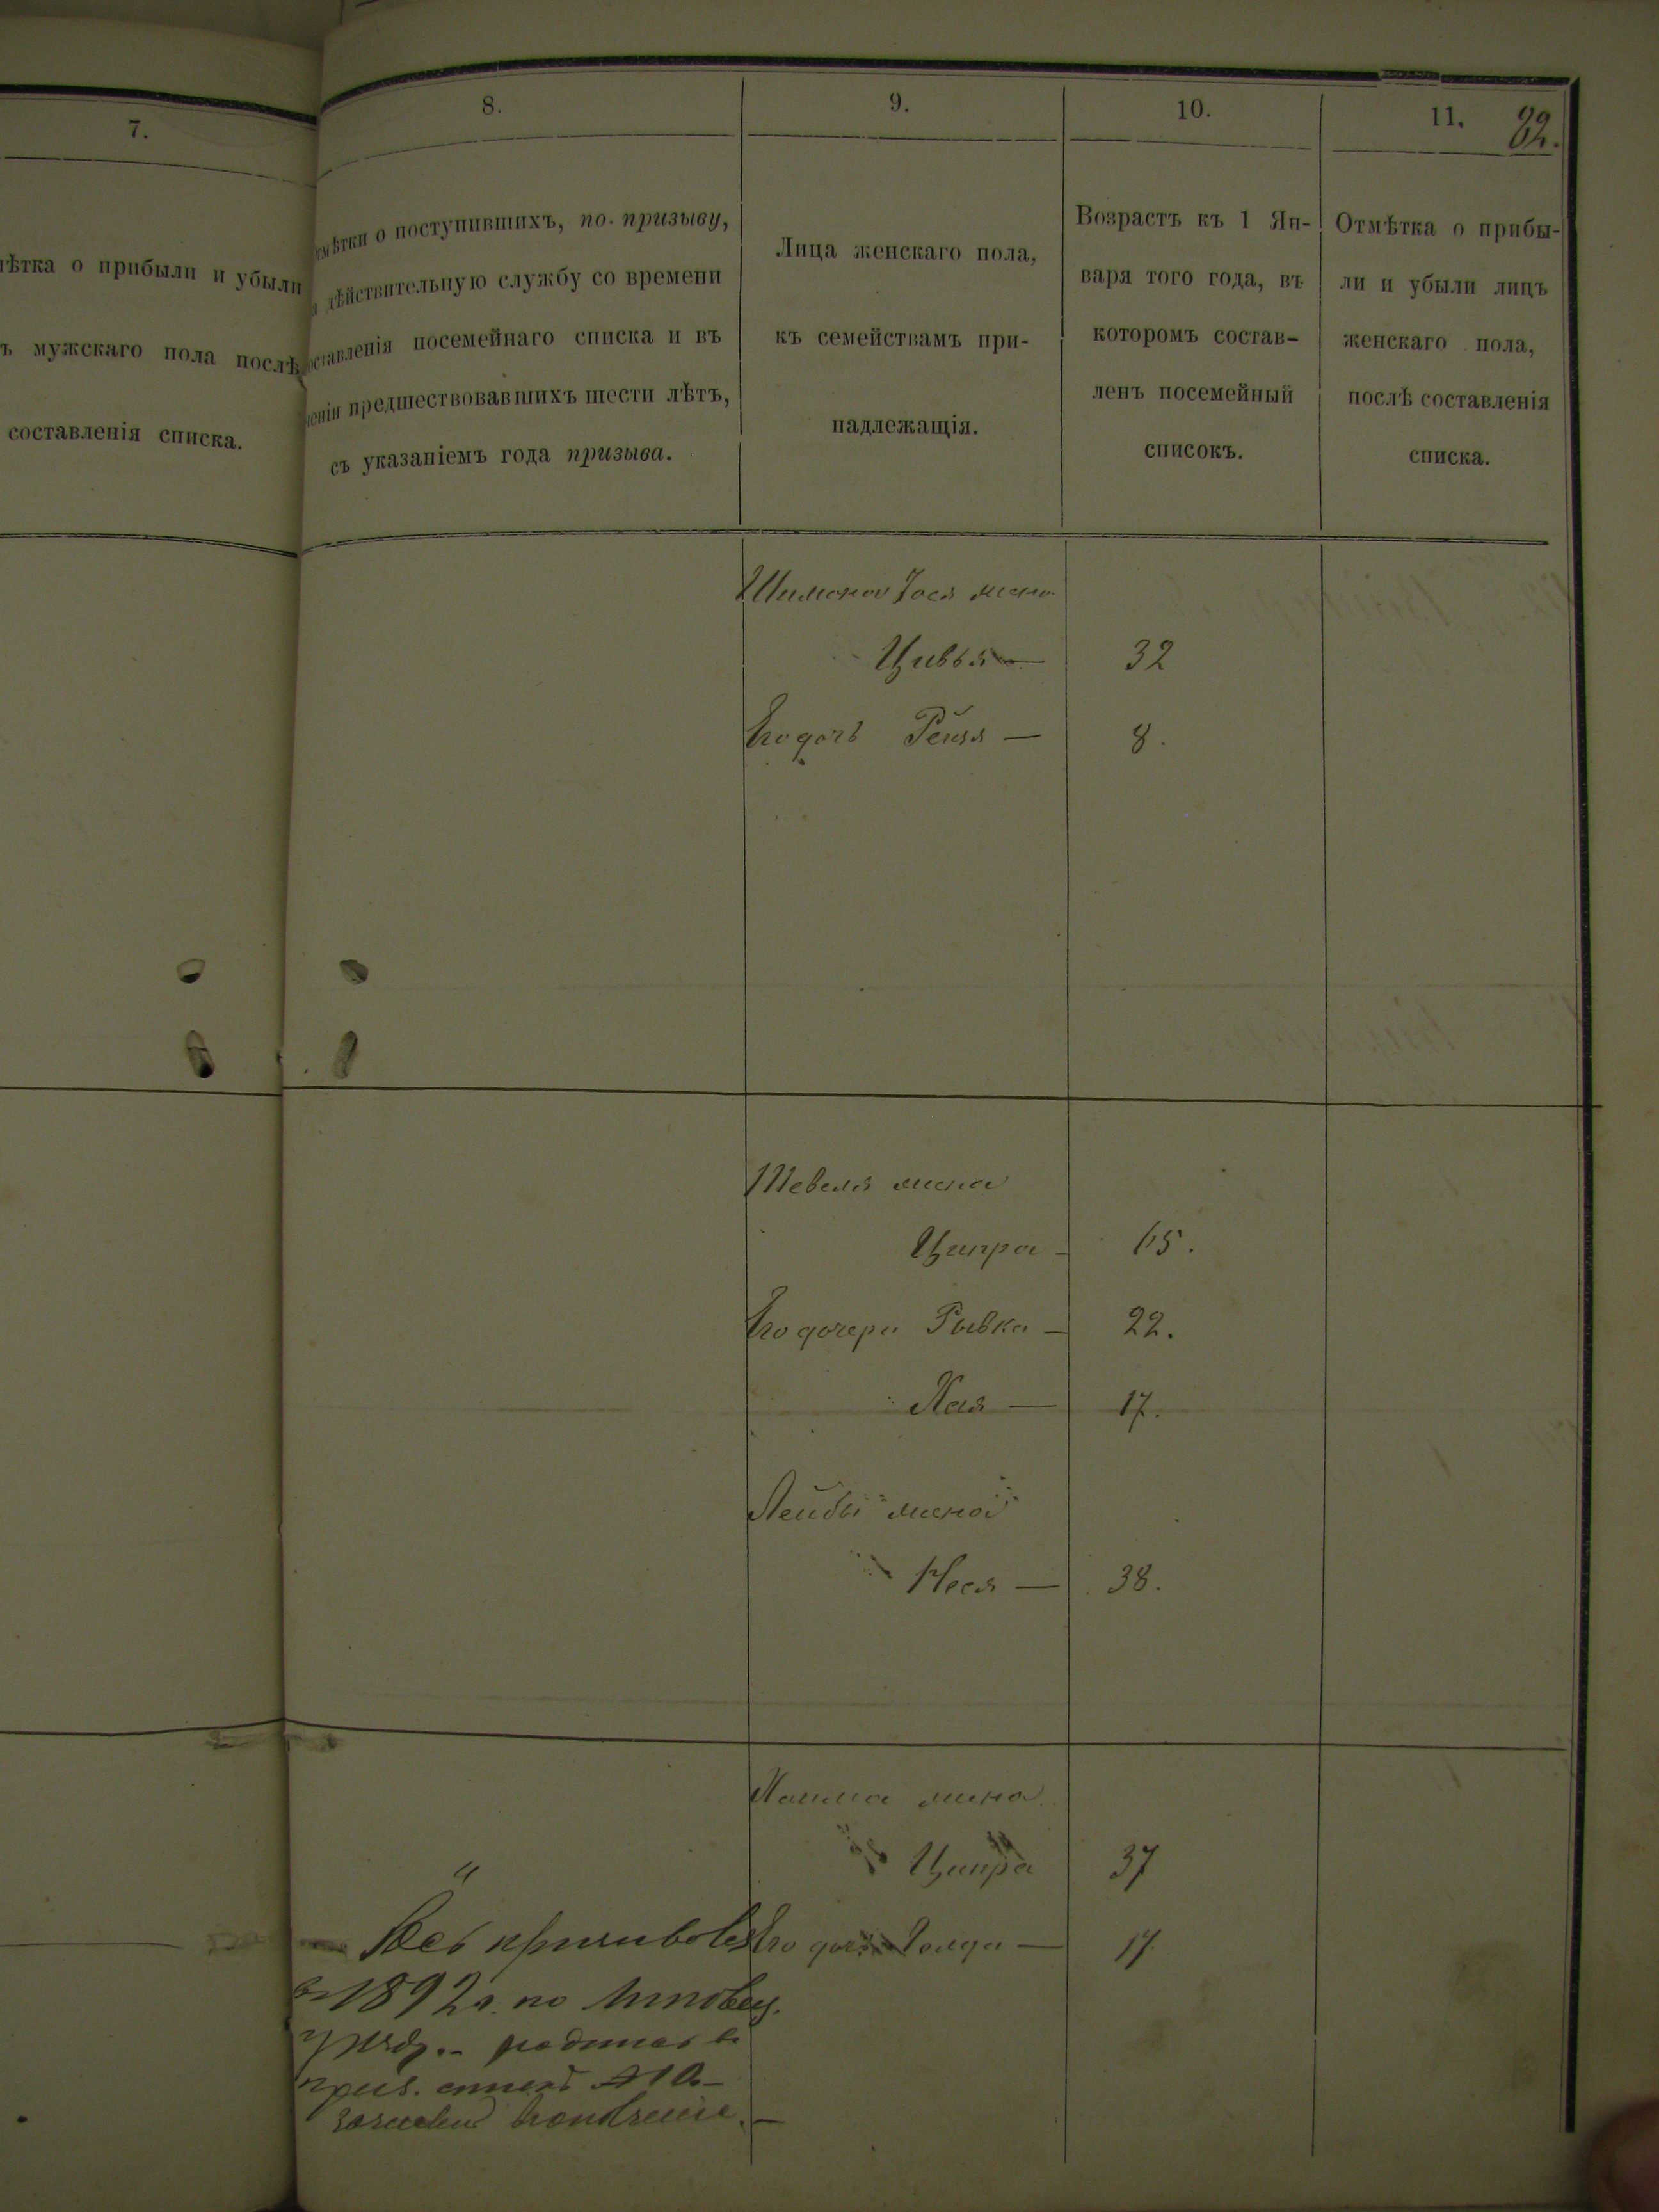 7.
ѣтка о прибыли и убыли
ъ мужскаго пола послѣ
составленія списка.
8.
ѣтки о поступившихъ, по призыву,
дѣйствительную службу со времени
составленія посемейнаго списка и въ
еніи предшествовавшихъ шести лѣтъ,
съ указаніемъ года призыва.
9.
Лица женскаго пола,
къ семействамъ при-
надлежащія.
10.
Возрастъ къ 1 Ян-
варя того года, въ
которомъ состав-
ленъ посемейный
списокъ.
11.
Отмѣтка о прибы-
ли и убыли лицъ
женскаго пола,
послѣ составленія
списка.
Шимона Іося жена
Цивья — 32
Его дочь Рейзя — 8.
Шевеля жена
Ципра — 65.
Его дочери Рывка — 22.
Хая — 17.
Лейбы жена
Неся — 38.
Хаима жена
Ципра 37
Его дочь Голда — 17
1892 г. по
приз.